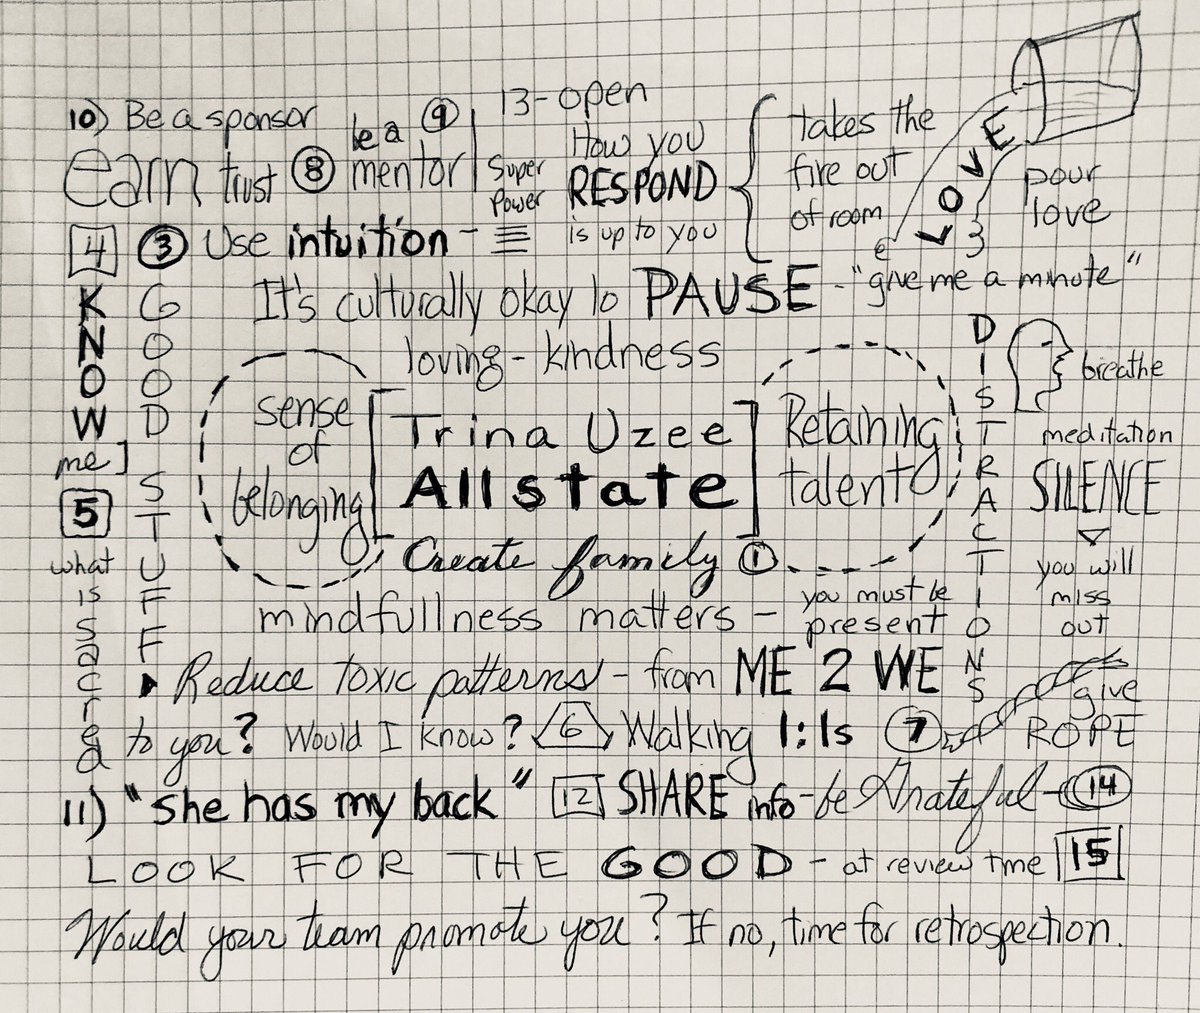 10) Be a sponsor
earn trust
8 be a mentor 9
13 - open
Super Power
How you
RESPOND
is up to you
takes the
fire out
of room
LOVE
pour
love
4 KNOW me]
3 Use intuition -
GOOD STUFF
It's culturally okay to PAUSE - "give me a minute"
loving - kindness
sense
of
belonging
[Trina Uzee
Allstate]
Retaining
talent
Create family 1
DISTRACTIONS
breathe
meditation
SILENCE
you will
miss
out
5
what
is
sacred to you? Would I know?
mindfullness matters - you must be present
Reduce toxic patterns - from ME 2 WE
6 Walking 1:1s 7
give
ROPE
11) "she has my back" 12 SHARE info - be Grateful - 14
LOOK FOR THE GOOD - at review time 15
Would your team promote you? If no, time for retrospection.